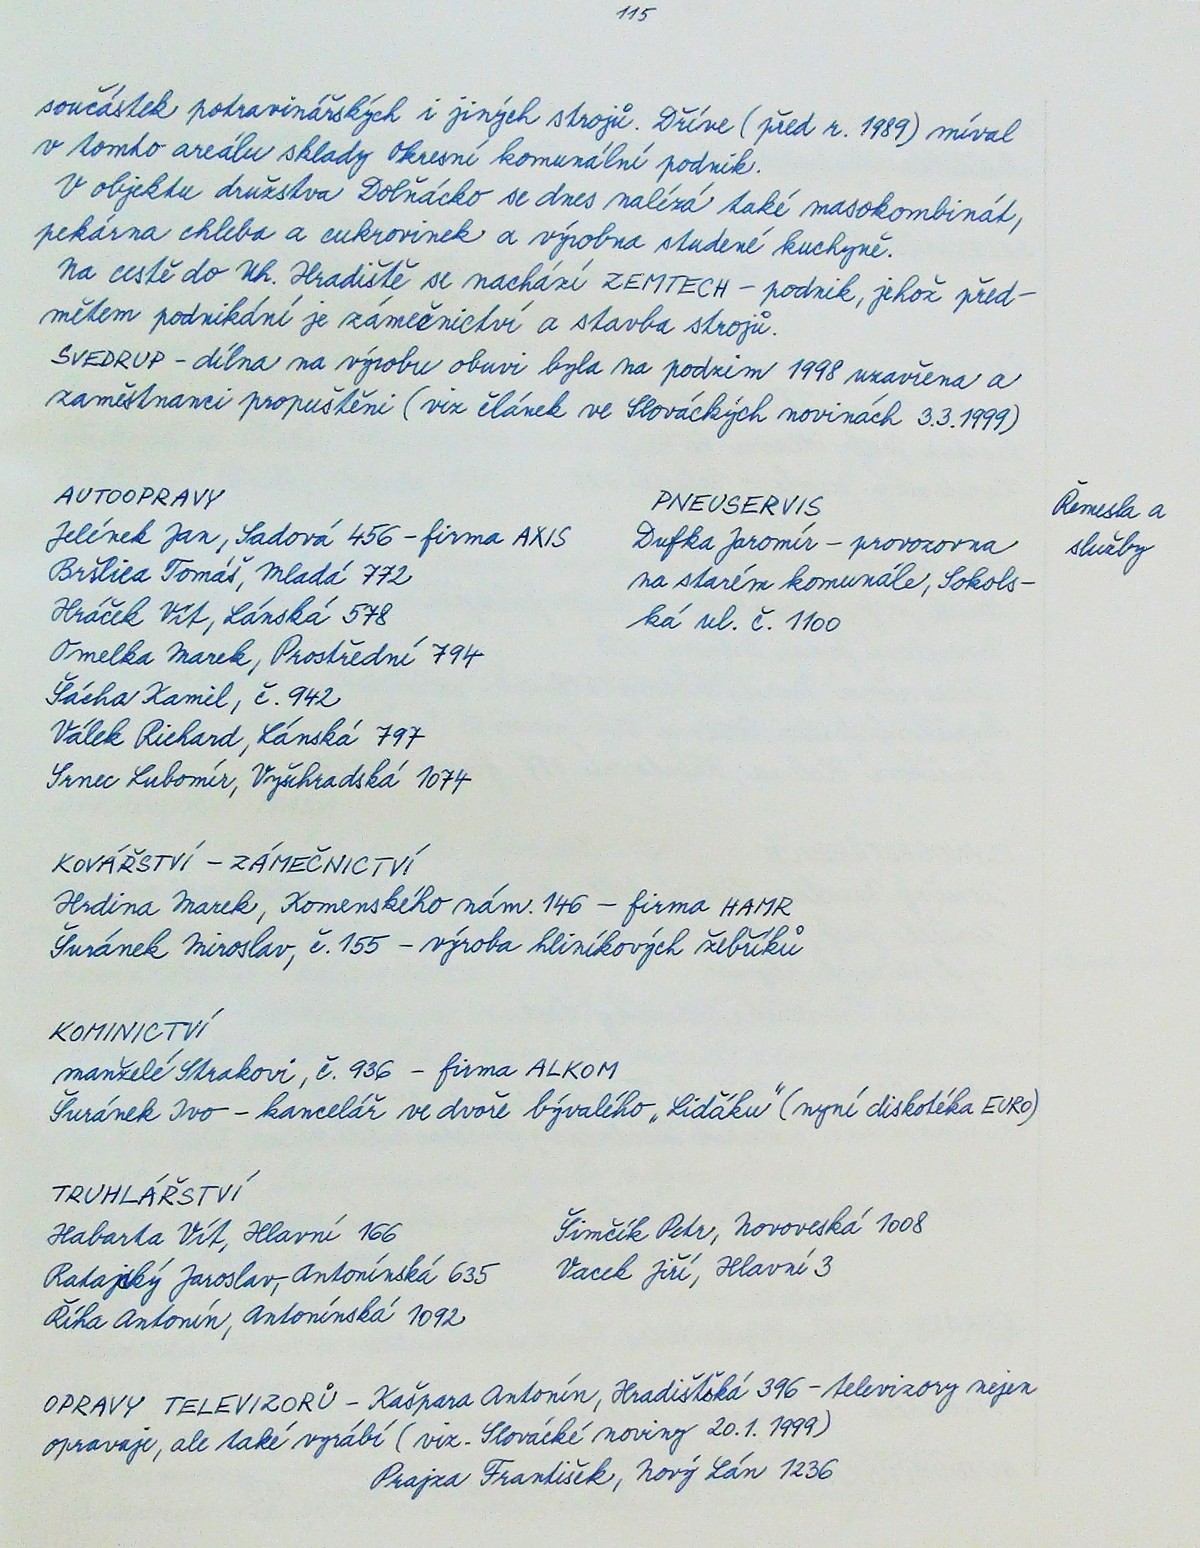 115
součástek potravinářských i jiných strojů. Dříve (před r. 1989) míval
v tomto areálu sklady Okresní komunální podnik.
V objektu družstva Dolňácko se dnes nalézá také masokombinát,
pekárna chleba a cukrovinek a výrobna studené kuchyně.
Na cestě do Uh. Hradiště se nachází ZEMTECH – podnik, jehož před-
mětem podnikání je zámečnictví a stavba strojů.
SVEDRUP – dílna na výrobu obuvi byla na podzim 1998 uzavřena a
zaměstnanci propuštěni (viz článek ve Slováckých novinách 3.3.1999)
Řemesla a
služby
AUTOOPRAVY
Jelének Jan, Sadová 456 – firma AXIS
Bršlica Tomáš, Mladá 772
Hráček Vít, Lánská 578
Omelka Marek, Prostřední 794
Šácha Kamil, č. 942
Válek Richard, Lánská 797
Srnec Lubomír, Vyšehradská 1074
PNEUSERVIS
Dufka Jaromír – provozovna
na starém komunále, Sokols-
ká ul. č. 1100
KOVÁŘSTVÍ – ZÁMEČNICTVÍ
Hrdina Marek, Komenského nám. 146 – firma HAMR
Šuránek Miroslav, č. 155 – výroba hliníkových žebříků
KOMINICTVÍ
manželé Strakovi, č. 936 – firma ALKOM
Šuránek Ivo – kancelář ve dvoře bývalého „Lidáku" (nyní diskotéka EURO)
TRUHLÁŘSTVÍ
Habarta Vít, Hlavní 166
Radajský Jaroslav, Antonínská 635
Říha Antonín, Antonínská 1092
Šimčík Petr, Novoveská 1008
Vacek Jiří, Hlavní 3
OPRAVY TELEVIZORŮ – Kašpara Antonín, Hradišťská 396 – televizory nejen
opravuje, ale také vyrábí (viz. Slovácké noviny 20.1. 1999)
Prajza František, Nový Lán 1236